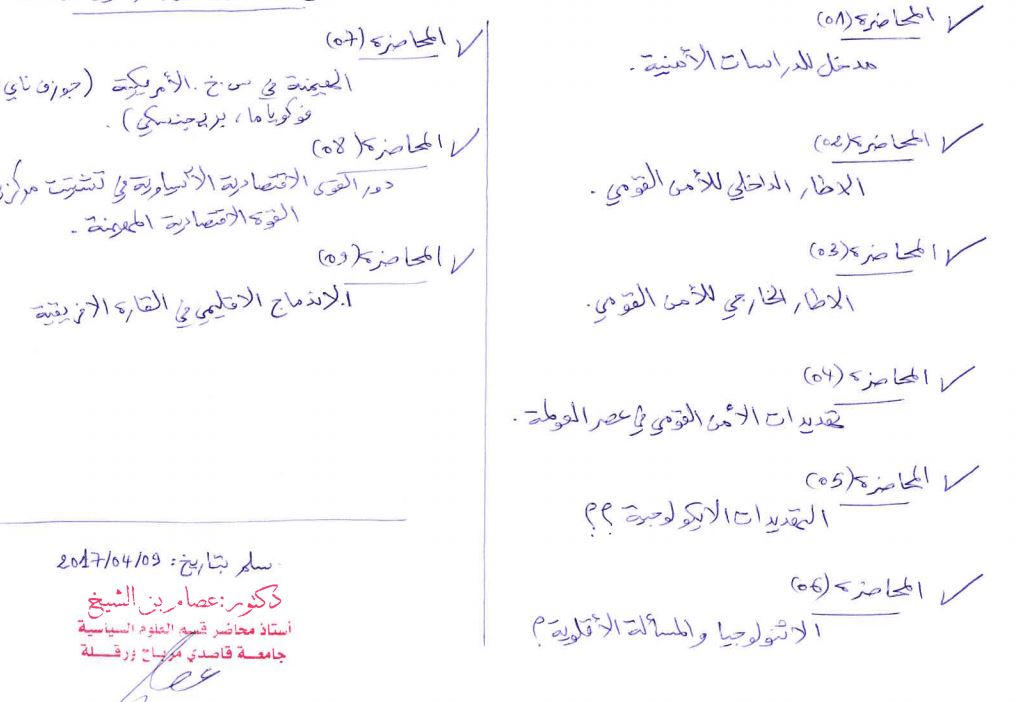 المحاضرة (01)
مدخل للدراسات الأمنية.
المحاضرة (02)
الاطار الداخلي للأمن القومي.
المحاضرة (03)
الاطار الخارجي للأمن القومي.
المحاضرة (04)
تهديدات الأمن القومي في عصر العولمة.
المحاضرة (05)
التهديدات الايكولوجية ؟؟
المحاضرة (06)
الاثنولوجيا والمسألة الأقلوية ؟
المحاضرة (07)
الهيمنة في س.خ. الأمريكية (جوزف ناي
فوكوياما، بريجنسكي).
المحاضرة (08)
دور القوى الاقتصادية الآسياوية في تشتيت
القوة الاقتصادية المهيمنة.
المحاضرة (09)
الاندماج الاقليمي في القارة الافريقية
سلم بتاريخ: 2017/04/09
دكتور: عصام بن الشيخ
أستاذ محاضر قسم العلوم السياسية
جامعة قاصدي مرباح ورقلة